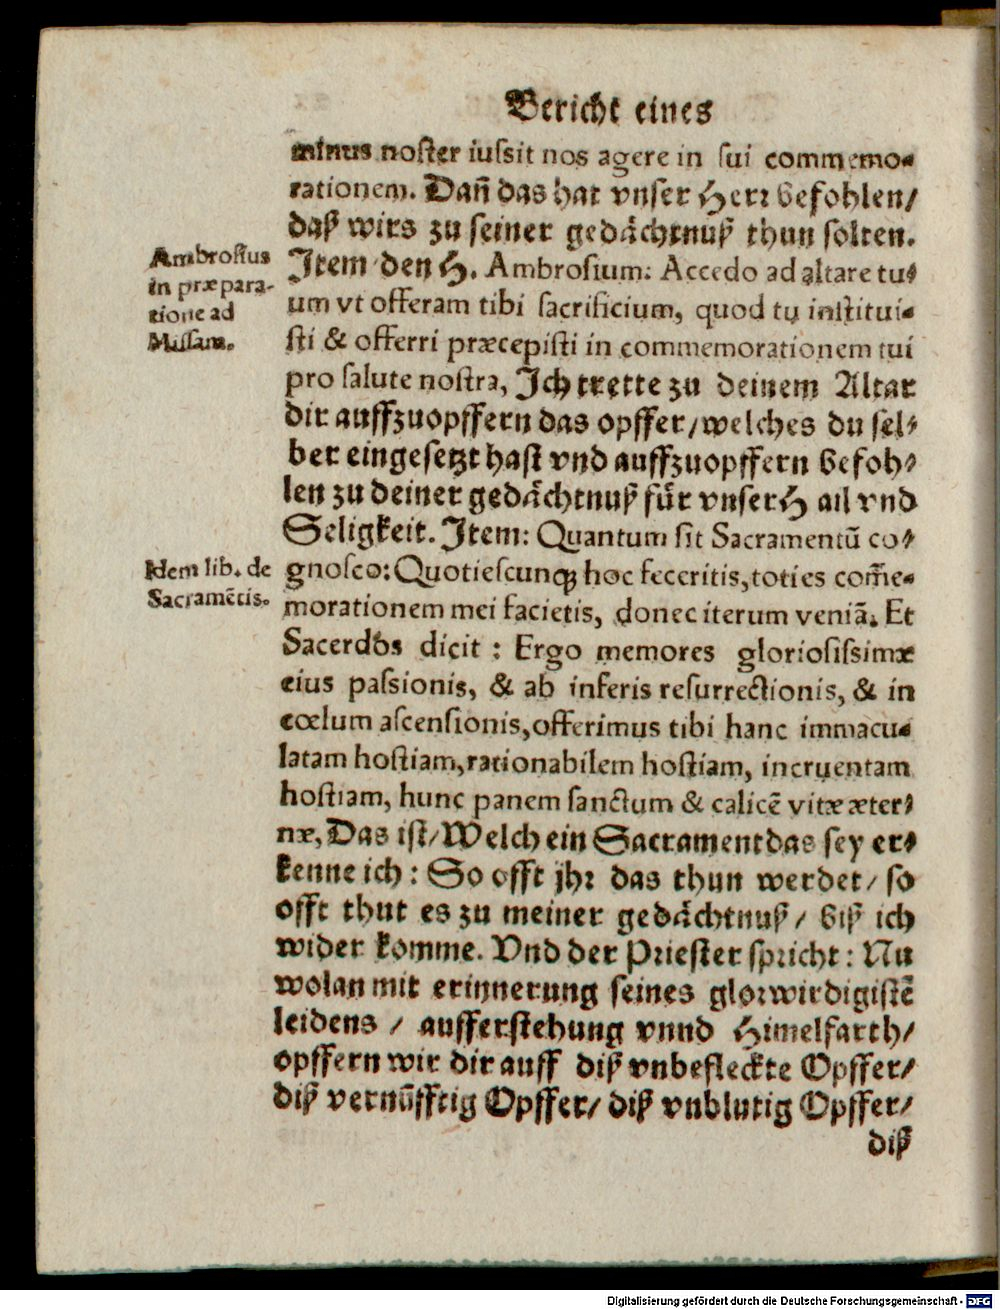 Bericht eines
minus noster iussit nos agere in sui commemo-
rationem. Dañ das hat vnser Herr befohlen/
daß wirs zu seiner gedächtnuß thun solten.
Ambrosius
in præpara-
tione ad
Missam.
Item den H. Ambrosium: Accedo ad altare tu-
um vt offeram tibi sacrificium, quod tu institui-
sti & offerri præcepisti in commemorationem tui
pro salute nostra, Ich trette zu deinem Altar
dir auffzuopffern das opffer/welches du sel-
ber eingesetzt hast vnd auffzuopffern befoh-
len zu deiner gedächtnuß für vnser H ail vnd
Seligkeit. Item: Quantum sit Sacramentũ co-
Idem lib. de
Sacramẽtis.
gnosco: Quotiescunq; hoc feceritis, toties com̃e-
morationem mei facietis, donec iterum veniã. Et
Sacerdos dicit : Ergo memores gloriosissimæ
eius passionis, & ab inferis resurrectionis, & in
cœlum ascensionis, offerimus tibi hanc immacu-
latam hostiam, rationabilem hostiam, incruentam
hostiam, hunc panem sanctum & calicẽ vitæ æter-
næ, Das ist/Welch ein Sacrament das sey er-
kenne ich : So offt jhr das thun werdet/ so
offt thut es zu meiner gedächtnuß/ biß ich
wider komme. Vnd der Priester spricht : Nu
wolan mit erinnerung seines glorwirdigistẽ
leidens / aufferstehung vnnd Himelfarth/
opffern wir dir auff diß vnbefleckte Opffer/
diß vernũfftig Opffer/ diß vnblutig Opffer/
diß
Digitalisierung gefördert durch die Deutsche Forschungsgemeinschaft - DFG